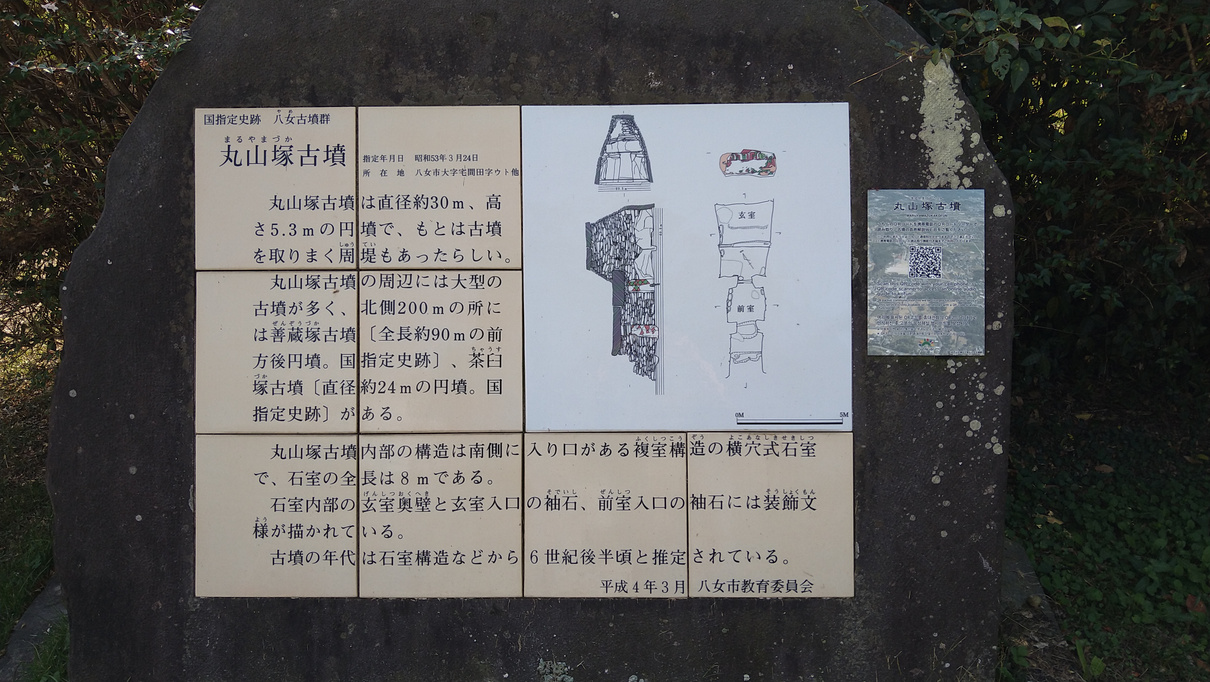 国指定史跡 八女古墳群
やめ
まるやまづか
丸山塚古墳
指定年月日 昭和53年3月24日
所在地 八女市大字宅間田字ウト他
丸山塚古墳は直径約30m、高
さ5.3mの円墳で、もとは古墳
しゅう てい
を取りまく周堤もあったらしい。
丸山塚古墳の周辺には大型の
古墳が多く、北側200mの所に
ぜんぞうづか
は善蔵塚古墳〔全長約90mの前
ちゃうす
方後円墳。国指定史跡〕、茶臼
づか
塚古墳〔直径約24mの円墳。国
指定史跡〕がある。
ふくしつこうぞう よこあなしきせきしつ
丸山塚古墳内部の構造は南側に入り口がある複室構造の横穴式石室
で、石室の全長は8mである。
げんしつおくへき そでいし ぜんしつ そうしょくもん
石室内部の玄室奥壁と玄室入口の袖石、前室入口の袖石には装飾文
よう
様が描かれている。
古墳の年代は石室構造などから6世紀後半頃と推定されている。
平成4年3月 八女市教育委員会
玄室
前室
0M 5M
丸山塚古墳